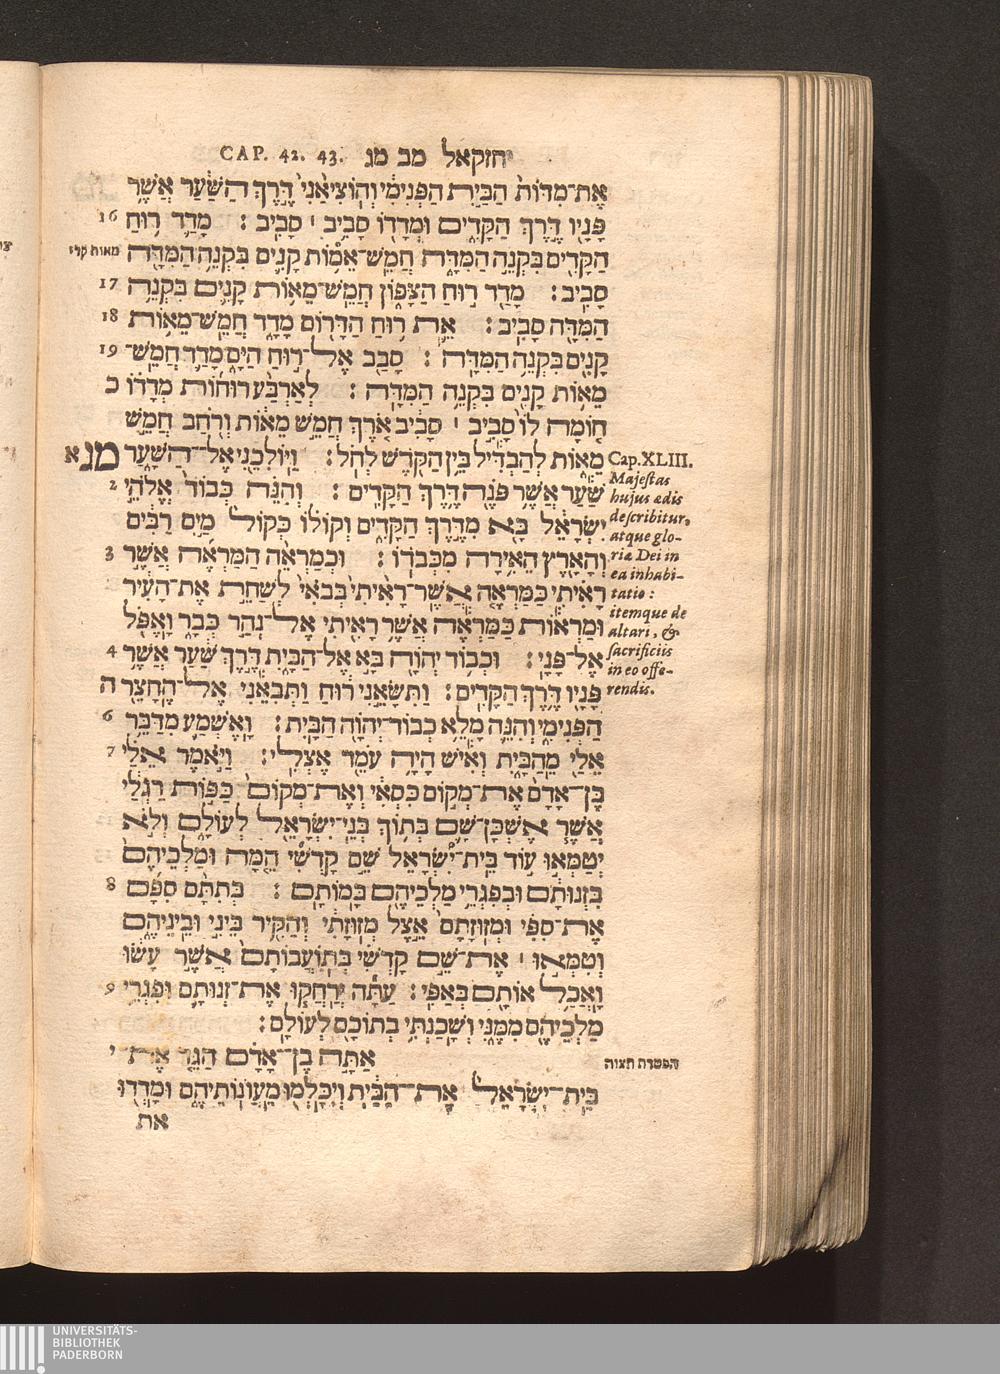 יחזקאל מב מג CAP. 42. 43.
אֶת־מִדּוֹת הַבַּיִת הַפְּנִימִי וְהוֹצִיאַנִי דֶּרֶךְ הַשַּׁעַר אֲשֶׁר
פָּנָיו דֶּרֶךְ הַקָּדִים וּמְדָדוֹ סָבִיב ׀ סָבִיב : מָדַד רוּחַ 16
הַקָּדִים בִּקְנֵה הַמִּדָּה חֲמֵשׁ־אֵמוֹת קָנִים בִּקְנֵה הַמִּדָּה מאות קרי
סָבִיב : מָדַד רוּחַ הַצָּפוֹן חֲמֵשׁ־מֵאוֹת קָנִים בִּקְנֵה 17
הַמִּדָּה סָבִיב : אֵת רוּחַ הַדָּרוֹם מָדָד חֲמֵשׁ־מֵאוֹת 18
קָנִים בִּקְנֵה הַמִּדָּה : סָבַב אֶל־רוּחַ הַיָּם מָדַד חֲמֵשׁ־ 19
מֵאוֹת קָנִים בִּקְנֵה הַמִּדָּה : לְאַרְבַּע רוּחוֹת מְדָדוֹ כ
חוֹמָה לוֹ סָבִיב ׀ סָבִיב אֹרֶךְ חֲמֵשׁ מֵאוֹת וְרֹחַב חֲמֵשׁ
מֵאוֹת לְהַבְדִּיל בֵּין הַקֹּדֶשׁ לְחֹל : וַיּוֹלִכֵנִי אֶל־הַשָּׁעַר מג א
שַׁעַר אֲשֶׁר פֹּנֶה דֶּרֶךְ הַקָּדִים : וְהִנֵּה כְּבוֹד אֱלֹהֵי 2
יִשְׂרָאֵל בָּא מִדֶּרֶךְ הַקָּדִים וְקוֹלוֹ כְּקוֹל מַיִם רַבִּים
וְהָאָרֶץ הֵאִירָה מִכְּבֹדוֹ : וּכְמַרְאֵה הַמַּרְאֶה אֲשֶׁר 3
רָאִיתִי כַּמַּרְאֶה אֲשֶׁר־רָאִיתִי בְּבֹאִי לְשַׁחֵת אֶת־הָעִיר
וּמַרְאוֹת כַּמַּרְאֶה אֲשֶׁר רָאִיתִי אֶל־נְהַר כְּבָר וָאֶפֹּל
אֶל־פָּנָי : וּכְבוֹד יְהוָה בָּא אֶל־הַבָּיִת דֶּרֶךְ שַׁעַר אֲשֶׁר 4
פָּנָיו דֶּרֶךְ הַקָּדִים : וַתִּשָּׂאֵנִי רוּחַ וַתְּבִאֵנִי אֶל־הֶחָצֵר ה
הַפְּנִימִי וְהִנֵּה מָלֵא כְבוֹד־יְהוָה הַבָּיִת : וָאֶשְׁמַע מִדַּבֵּר 6
אֵלַי מֵהַבָּיִת וְאִישׁ הָיָה עֹמֵד אֶצְלִי : וַיֹּאמֶר אֵלַי 7
בֶּן־אָדָם אֶת־מְקוֹם כִּסְאִי וְאֶת־מְקוֹם כַּפּוֹת רַגְלַי
אֲשֶׁר אֶשְׁכָּן־שָׁם בְּתוֹךְ בְּנֵי־יִשְׂרָאֵל לְעוֹלָם וְלֹא
יְטַמְּאוּ עוֹד בֵּית־יִשְׂרָאֵל שֵׁם קָדְשִׁי הֵמָּה וּמַלְכֵיהֶם
בִּזְנוּתָם וּבְפִגְרֵי מַלְכֵיהֶם בָּמוֹתָם : בְּתִתָּם סִפָּם 8
אֶת־סִפִּי וּמְזוּזָתָם אֵצֶל מְזוּזָתִי וְהַקִּיר בֵּינִי וּבֵינֵיהֶם
וְטִמְּאוּ ׀ אֶת־שֵׁם קָדְשִׁי בְּתוֹעֲבוֹתָם אֲשֶׁר עָשׂוּ
וָאֲכַל אוֹתָם בְּאַפִּי : עַתָּה יְרַחֲקוּ אֶת־זְנוּתָם וּפִגְרֵי 9
מַלְכֵיהֶם מִמֶּנִּי וְשָׁכַנְתִּי בְתוֹכָם לְעוֹלָם :
אַתָּה בֶן־אָדָם הַגֵּד אֶת־ י
בֵּית־יִשְׂרָאֵל אֶת־הַבַּיִת וְיִכָּלְמוּ מֵעֲוֹנוֹתֵיהֶם וּמָדְדוּ
את
Cap.XLIII.
Majestas
hujus ædis
describitur,
atque glo-
riæ Dei in
ea inhabi-
tatio :
itemque de
altari, &
sacrificiis
in eo offe-
rendis.
הפטרה תצוה
UNIVERSITÄTS-
BIBLIOTHEK
PADERBORN